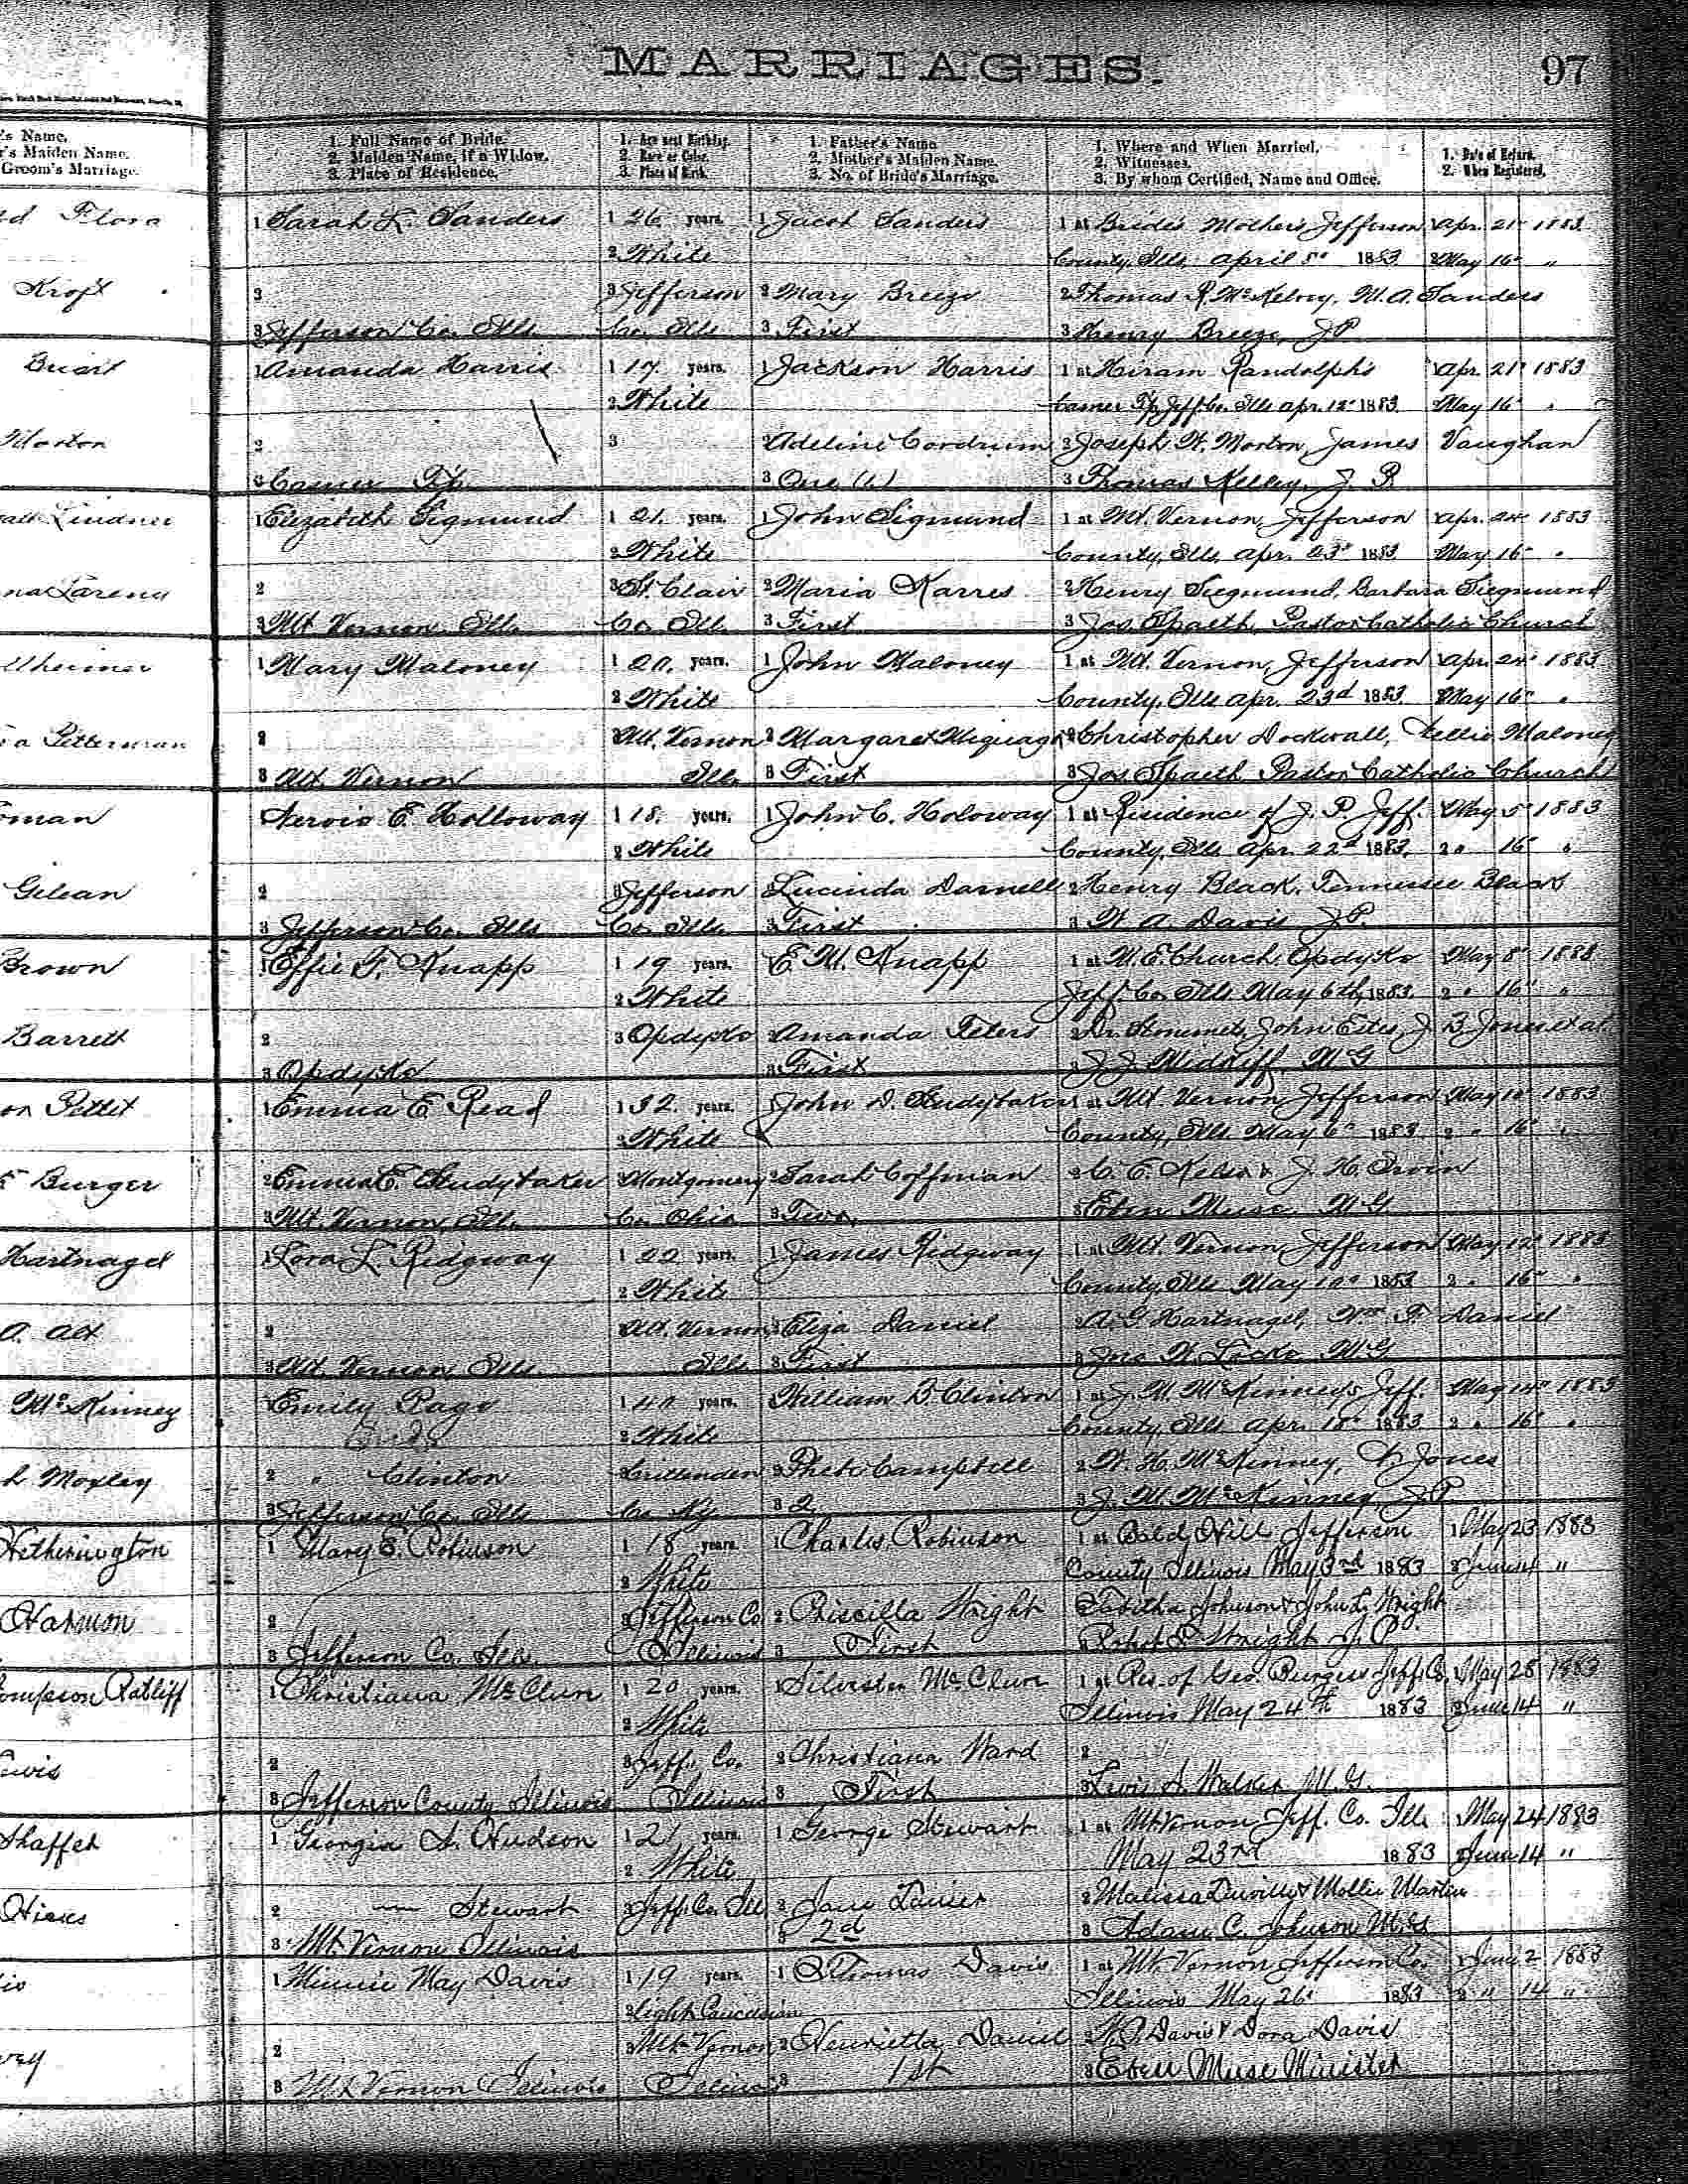 MARRIAGES.
97
's Name.
r's Maiden Name.
Groom's Marriage.
1. Full Name of Bride.
2. Maiden Name, if a Widow.
3. Place of Residence.
1. Age next Birthday.
2. Race or Color.
3. Place of Birth.
1. Father's Name
2. Mother's Maiden Name.
3. No. of Bride's Marriage.
1. Where and When Married.
2. Witnesses.
3. By whom Certified, Name and Office.
1. Date of Return.
2. When Registered.
Flora 1 Sarah L. Sanders 1 26 years. 1 Jacob Sanders 1 at Bride's Mothers Jefferson Apr. 21" 1883
2 White County, Ills. April 5" 1883 2 May 16" "
Kroft 3 3 Jefferson 2 Mary Breeze 2 Thomas R. McKelvey, M. A. Sanders
3 Jefferson Co. Ills Co. Ills 3 First 3 Henry Breeze, J P
1 Amanda Harris 1 17 years. 1 Jackson Harris 1 at Hiram Randolph's Apr. 21" 1883
2 White Tp. Jeff. Co. Ills Apr. 12" 1883 May 16" "
Morton 2 3 2 Adeline Cordrum 2 Joseph W. Morton, James Vaughan
3 Tp. 3 One (1) 3 Thomas Kelley, J. P.
Lindner 1 Elizabeth Sigmund 1 21. years. 1 John Sigmund 1 at Mt. Vernon, Jefferson Apr. 24" 1883
2 White County, Ills, Apr. 23" 1883 May 16" "
2 3 St. Clair 2 Maria Karres 2 Henry Siegmund, Barbara Siegmund
3 Mt. Vernon Ills. Co. Ill. 3 First 3 Jos. Spaeth Pastor Catholic Church
1 Mary Maloney 1 20. years. 1 John Maloney 1 at Mt. Vernon, Jefferson Apr. 24" 1883
2 White County, Ills Apr. 23d 1883. May 16" "
Petterman 2 3 Mt. Vernon 2 Margaret 2 Christopher Dockwall, Nellie Maloney
3 Mt. Vernon Ills. 3 First 3 Jos. Spaeth Pastor Catholic Church
E. Holloway 1 18. years. 1 John C. Holoway 1 at Residence of J. P. Jeff. May 5" 1883
2 White County, Ills Apr. 22" 1883. 2 " 16" "
2 3 Jefferson 2 Lucinda Darnell 2 Henry Black, Tennessee Black
3 Jefferson Co. Ills Co. Ills 3 First 3 W. A. Davis J P.
Brown 1 Effie F. Knapp 1 19 years. E. W. Knapp 1 at M. E. Church, Opdyke May 8" 1883
2 White Jeff. Co. Ills May 6th, 1883. 2 " 16" "
Barrett 2 3 Opdyke 2 Amanda Peters 2 Dr. Stonemets, John Estes, J. B. Jones et al
3 Opdyke 3 First 3 J. J. Midkiff, M G
Pettit 1 Emma E. Read 1 32. years. 1 John D. Studybaker 1 at Mt. Vernon, Jefferson May 10" 1883
2 White County, Ills. May 6" 1883 2 " 16" "
Burger 2 Emma E. Studybaker 3 Montgomery 2 Sarah Coffman 2 C. E. Nelson J. H. Irvin
3 Mt. Vernon, Ill. Co. Ohio 3 Two. 3 Eben Muse M G
Hartnagel 1 Lora L. Ridgway 1 22 years. 1 James Ridgway 1 at Mt. Vernon, Jefferson May 12" 1883
2 White County, Ills May 10" 1883 2 " 16" "
A. Alt 2 3 Mt. Vernon 2 Eliza Daniel 2 A. G. Hartnagel, Wm. F. Daniel
3 Mt. Vernon Ills. Ills 3 First 3 Jas. W. Locke M G
McKinney Emily Page 1 40 years. William B. Clinton 1 at J. M. McKinney's Jeff. May 14" 1883
2 White County, Ills Apr. 18" 1883. 2 " 16" "
Moxley 2 " Clinton Crittenden 2 Campbell 2 W. H. McKinney, Jones
3 Jefferson Co. Ills Co. Ky. 3 2 3 J. M. McKinney, J. P.
Hetherington 1 Mary E. Robinson 1 18 years. 1 Charles Robinson 1 at Bald Hill Jefferson 1 May 23 1883
2 White County Illinois May 3rd 1883 2 June 14 "
Harmon 2 3 Jefferson Co. 2 Priscilla Wright Tabitha Johnson & John L. Wright
3 Jefferson Co. Ills. Illinois 3 First Robert Wright J. P.
Ratliff 1 Christiana McClure 1 20 years. 1 Silvester McClure 1 at Res. of Geo. Burgess Jeff. Co. May 25 1883
2 White Illinois May 24th 1883 2 June 14 "
2 3 Jeff. Co. 2 Christiana Ward 2
3 Jefferson County Illinois Illinois 3 First 3 Lewis A. Walker M. G.
Shaffer 1 Georgia A. Hudson 1 21 years. 1 George Stewart 1 at Mt Vernon Jeff. Co. Ills 1 May 24 1883
2 White May 23rd 1883 2 June 14 "
Hicks 2 — Stewart 3 Jeff. Co. Ill 2 Jane 2 Malissa & Mollie Martin
3 Mt. Vernon Illinois 3 2d 3 Adam C. Johnson M. G.
1 Minnie May Davis 1 19 years. 1 Thomas Davis 1 at Mt. Vernon Jefferson Co. 1 June 2 1883
2 Light Caucasian Illinois May 26" 1883 2 " 14 "
2 3 Mt. Vernon 2 Henrietta Daniel 2 Davis & Dora Davis
3 Mt. Vernon Illinois Illinois 3 1st 3 Eben Muse Minister